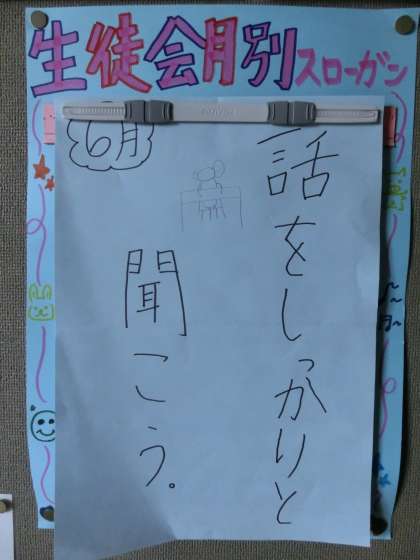 生徒会月別スローガン
6月
話をしっかりと
聞こう。